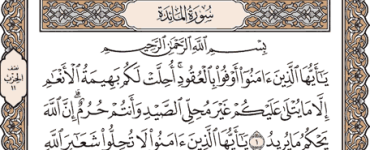 سُورَةُ المَائِدَةِ
بِسْمِ اللَّهِ الرَّحْمَٰنِ الرَّحِيمِ
يَٰٓأَيُّهَا ٱلَّذِينَ ءَامَنُوٓاْ أَوۡفُواْ بِٱلۡعُقُودِۚ أُحِلَّتۡ لَكُم بَهِيمَةُ ٱلۡأَنۡعَٰمِ
إِلَّا مَا يُتۡلَىٰ عَلَيۡكُمۡ غَيۡرَ مُحِلِّي ٱلصَّيۡدِ وَأَنتُمۡ حُرُمٌۗ إِنَّ ٱللَّهَ
يَحۡكُمُ مَا يُرِيدُ ١ يَٰٓأَيُّهَا ٱلَّذِينَ ءَامَنُواْ لَا تُحِلُّواْ شَعَٰٓئِرَ ٱللَّهِ
نصف
الحزب
١١